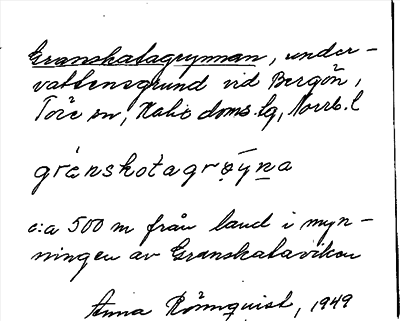 Granskatagrynnan, under-
vattensgrund vid Bergön,
Töre sn, Kalix doms.lg, Norrb.l
grànskotagrøýna
c:a 500 m från land i myn-
ningen av Granskataviken
Anna Rönnquist, 1949